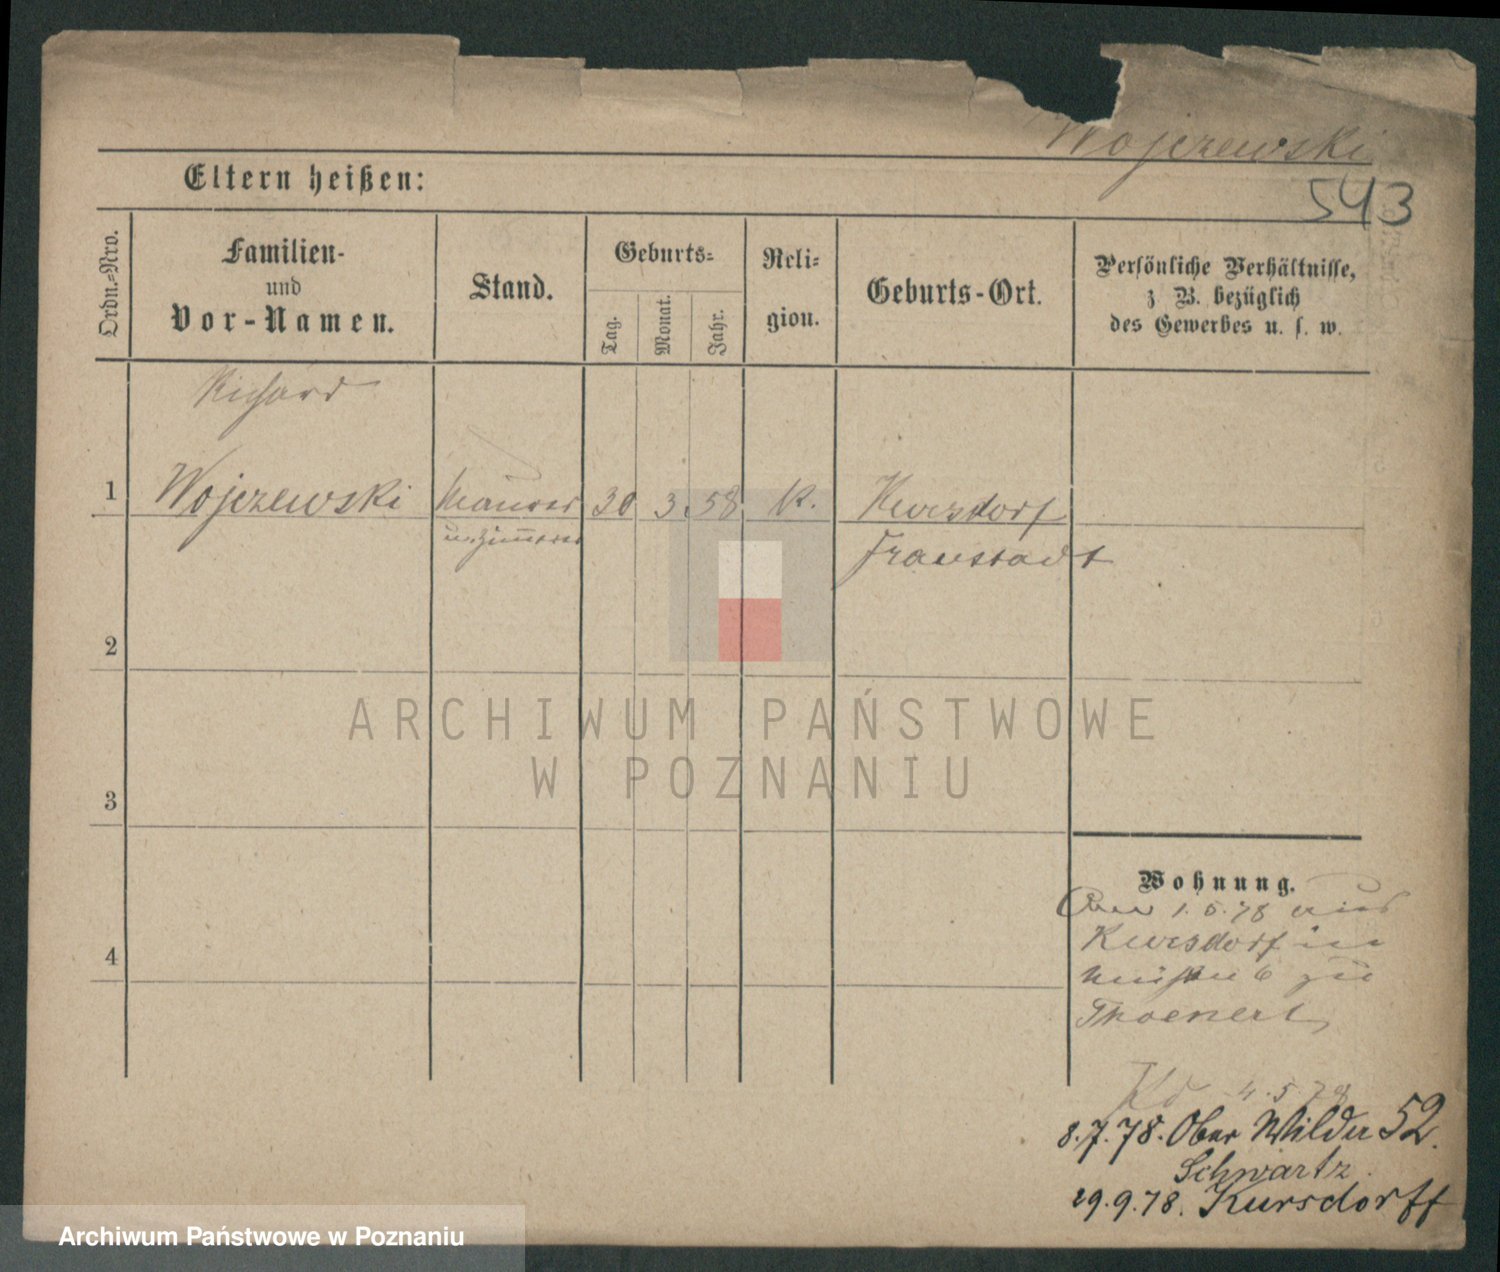 Wojczewski
543
Eltern heißen:
Ordn.-Nro.
Familien-
und
Vor-Namen.
Stand.
Geburts-
Tag.
Monat.
Jahr.
Reli-
gion.
Geburts-Ort.
Persönliche Verhältnisse,
z B. bezüglich
des Gewerbes u. s. w.
Richard
1 Wojczewski Maurer 30 3. 58 K. Kursdorf
u. Zimmerer Fraustadt
2
3
4
Wohnung.
Am 1.5.78 aus
Kursdorf in
6 zu
Thoenert
4.5.78
8.7.78. Ober Wilda 52.
Schwartz.
29.9.78. Kursdorff
ARCHIWUM PAŃSTWOWE
W POZNANIU
Archiwum Państwowe w Poznaniu